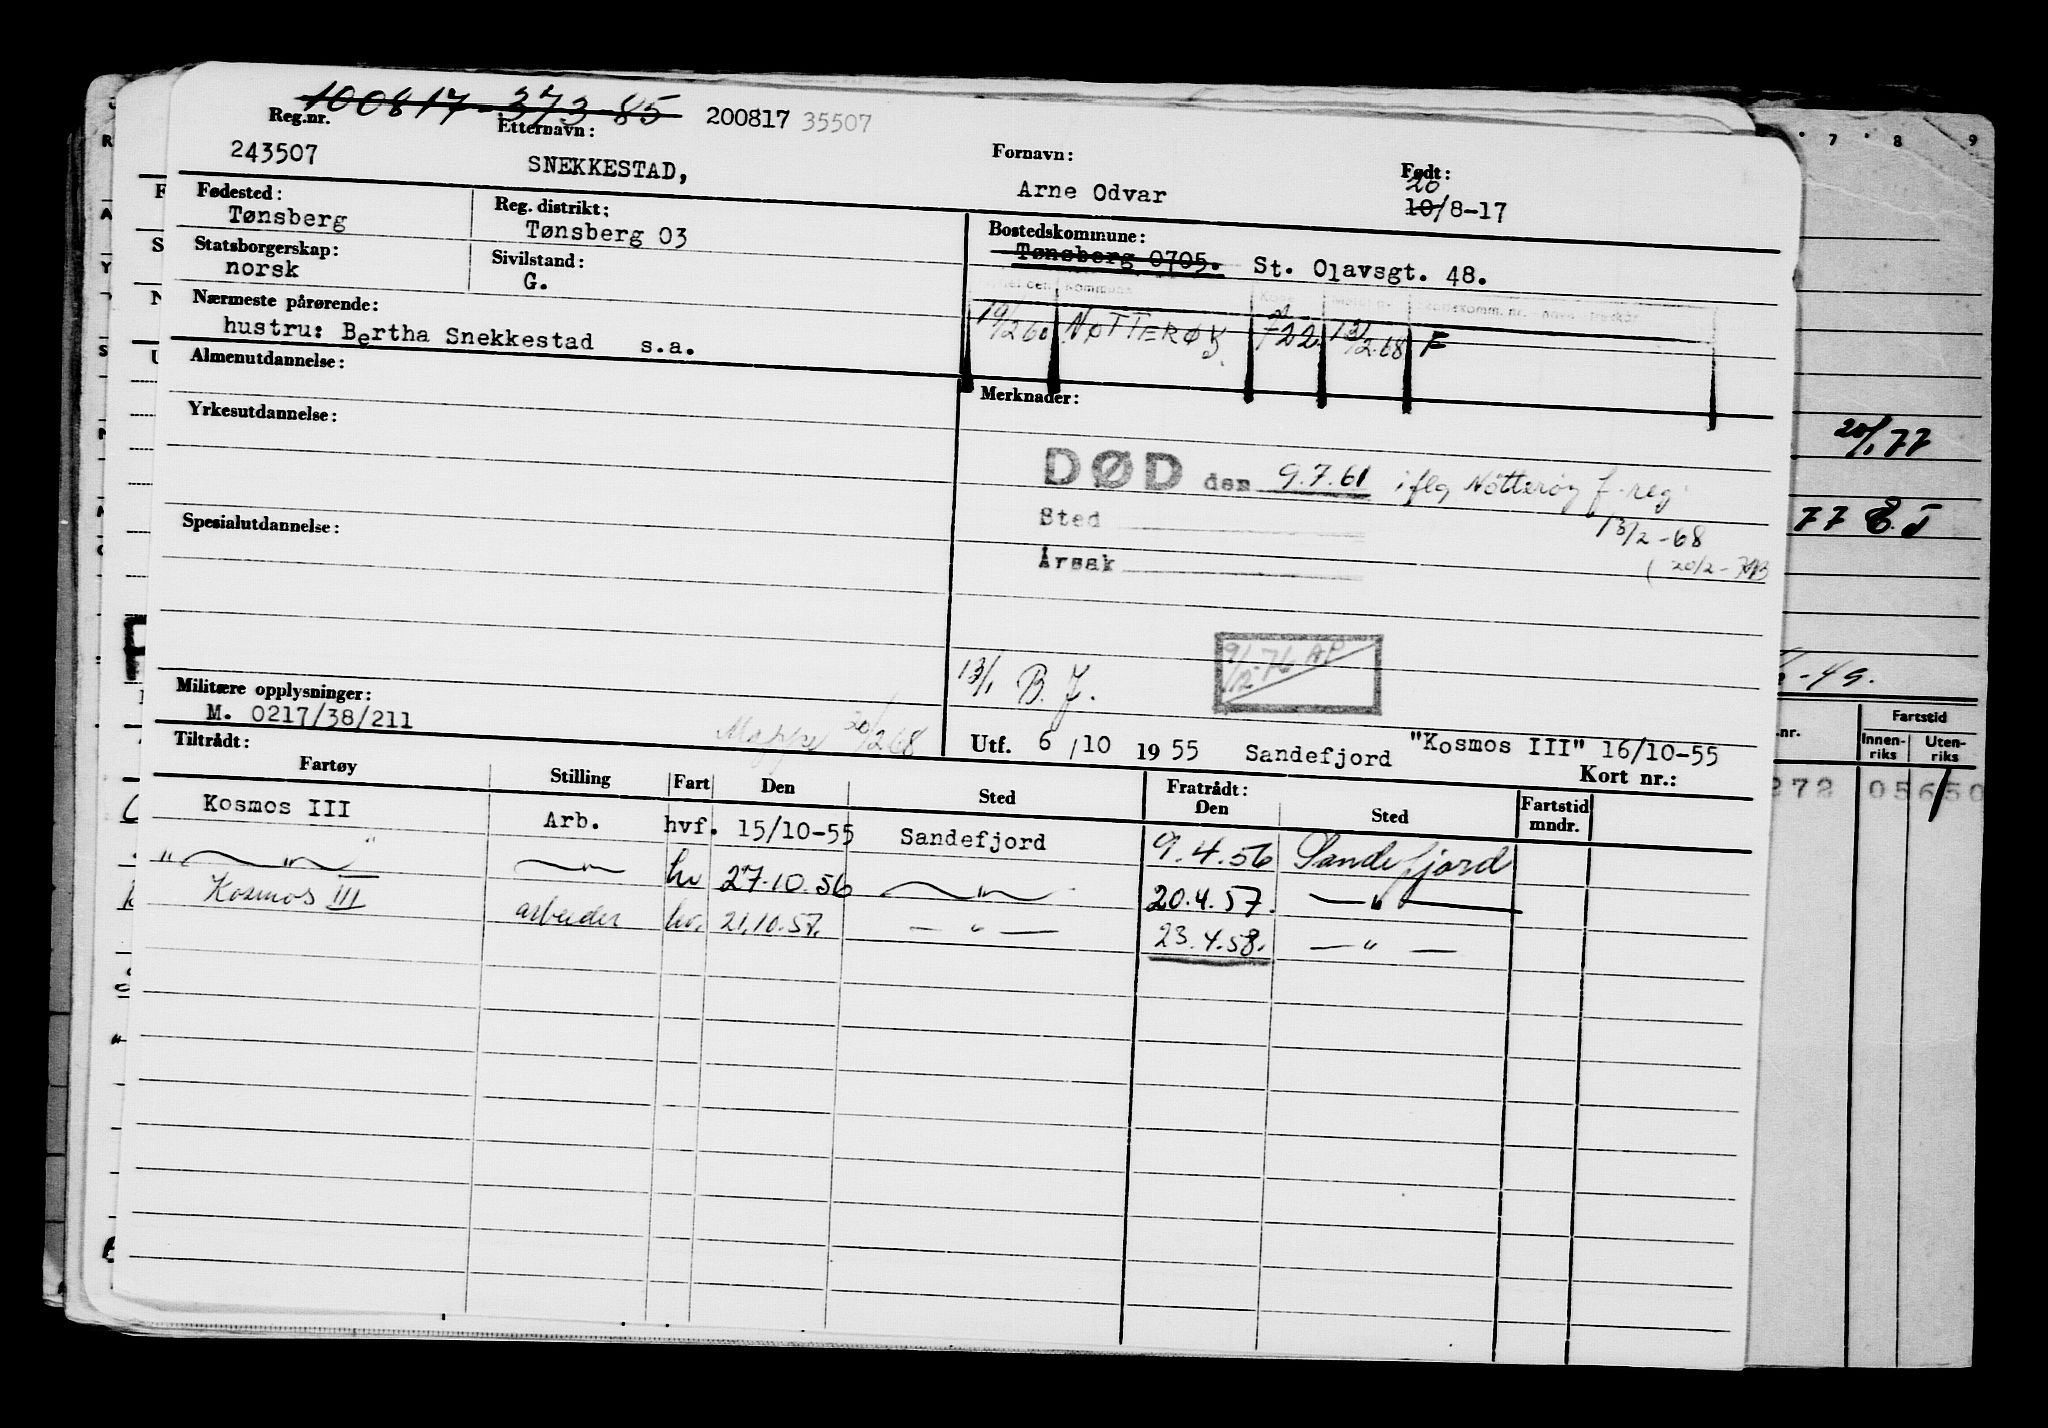 100817-373-85 200817 35507
Reg.nr. Etternavn: Fornavn: Født:
243507 SNEKKESTAD, Arne Odvar 20
10/8-17
Fødested: Reg. distrikt: Bostedskommune:
Tønsberg Tønsberg 03 Tønsberg 0705. St. Olavsgt. 48.
Statsborgerskap: Sivilstand:
norsk G.
Nærmeste pårørende: 19/2 60 NØTTERØY 722 13/2.68 F
hustru: Bertha Snekkestad s.a.
Almenutdannelse:
Merknader:
Yrkesutdannelse:
DØD den 9.7.61 iflg Nøtterøy f-reg
13/2-68
Sted
Spesialutdannelse:
Årsak
9/12-76 AP
13/1 B. J.
Militære opplysninger:
M. 0217/38/211
Mappe 20/2 68
Utf. 6/10 1955 Sandefjord "Kosmos III" 16/10-55
Tiltrådt: Fratrådt: Kort nr.:
Fartøy Stilling Fart Den Sted Den Sted Fartstid mndr.
Kosmos III Arb. hvf. 15/10-55 Sandefjord 9.4.56 Sandefjord
" " " hv 27.10.56 " 20.4.57. "
Kosmos III arbeider hv. 21.10.57. " 23.4.58. "
7 8 9
20/1 77
77 E.J
-49.
.nr. Fartstid
Innenriks Utenriks
272 05 650